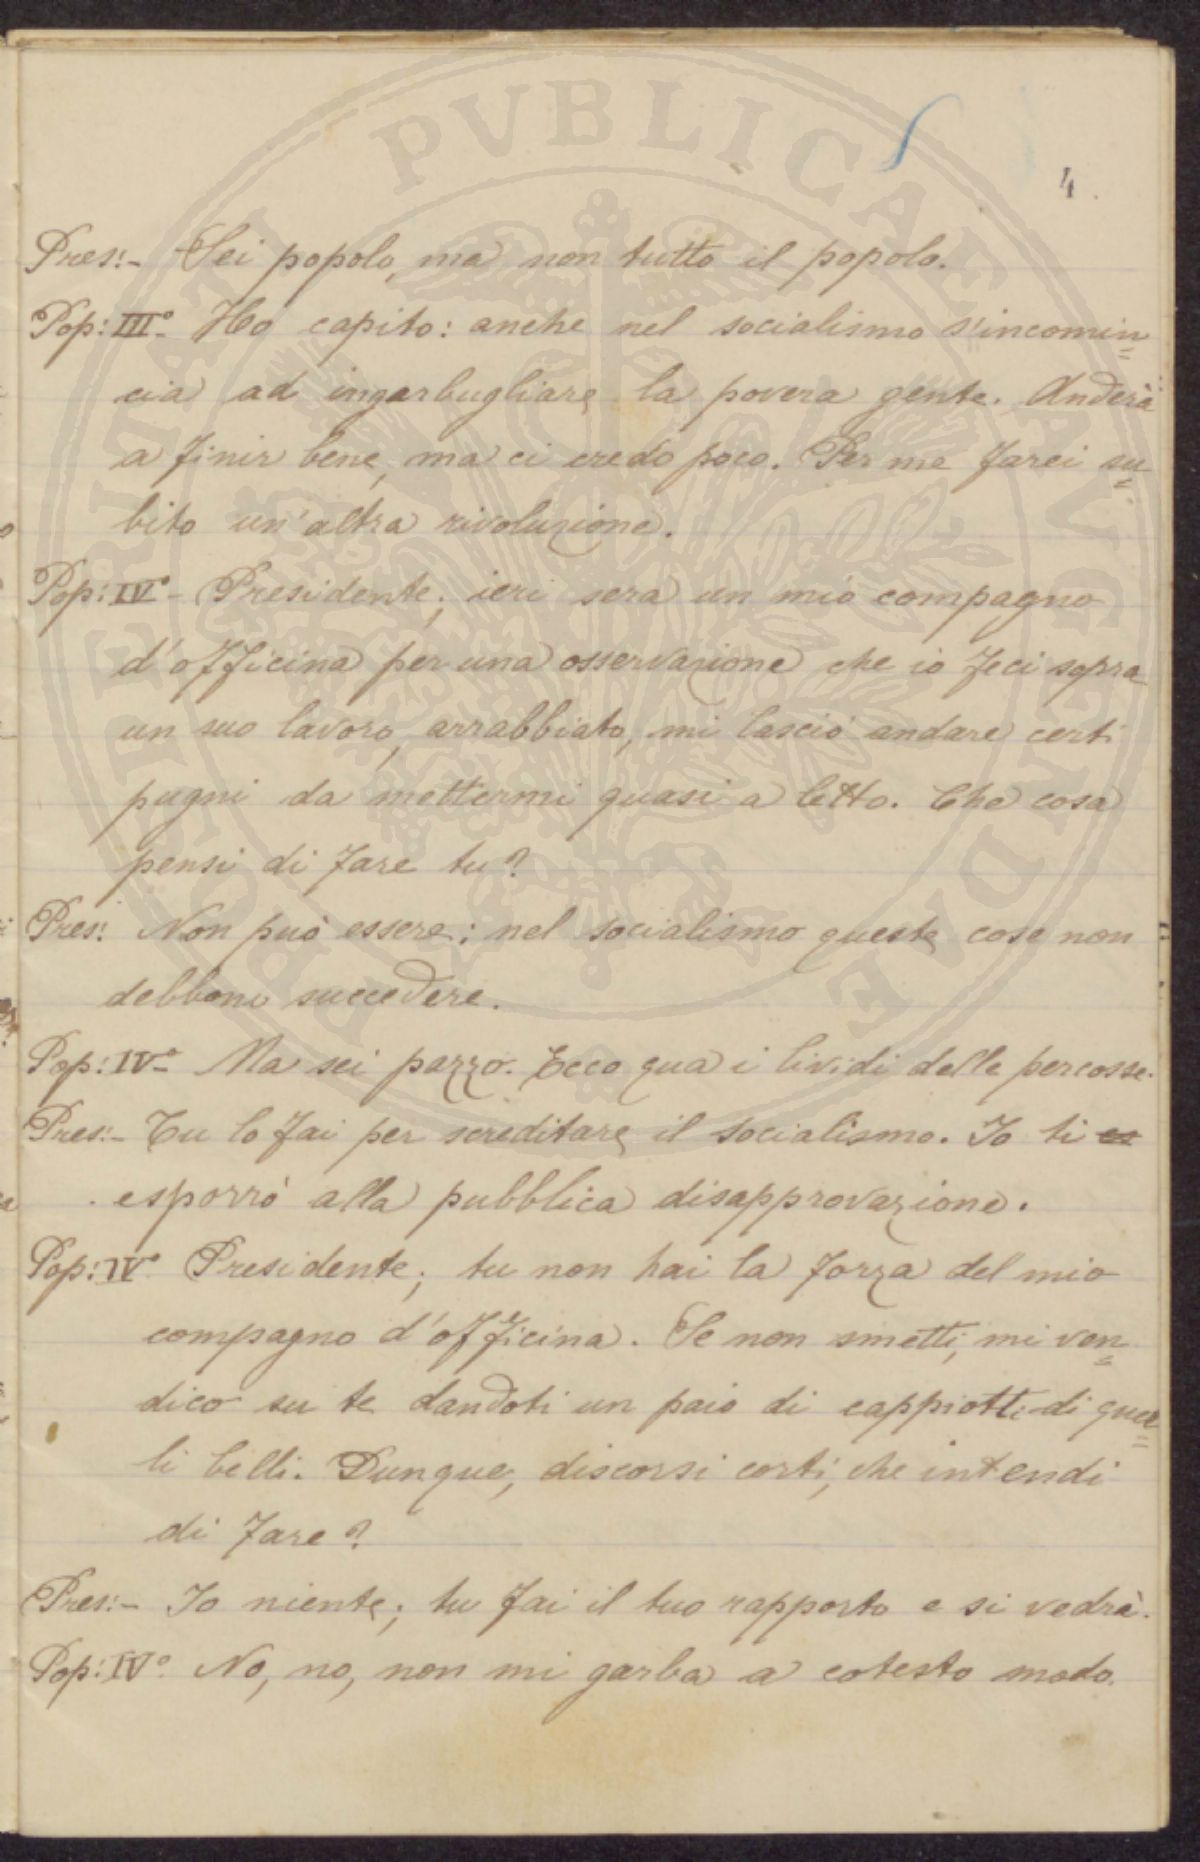 PROSPERITATI PVBLICAE AVGENDAE
4.
Pres:- Sei popolo, ma non tutto il popolo.
Pop: III° Ho capito: anche nel socialismo s'incomin=
cia ad ingarbugliare la povera gente. Anderà
a finir bene, ma ci credo poco. Per me farei su=
bito un'altra rivoluzione.
Pop: IV°- Presidente; ieri sera un mio compagno
d'officina per una osservazione che io feci sopra
un suo lavoro, arrabbiato, mi lasciò andare certi
pugni da mettermi quasi a letto. Che cosa
pensi di fare tu?
Pres: Non può essere: nel socialismo queste cose non
debbono succedere.
Pop: IV°- Ma sei pazzo. Ecco qua i lividi delle percosse.
Pres:- Tu lo fai per screditare il socialismo. Io ti es
esporrò alla pubblica disapprovazione.
Pop: IV° Presidente; tu non hai la forza del mio
compagno d'officina. Se non smetti, mi ven=
dico su te dandoti un paio di cappiotti di quel=
li belli. Dunque, discorsi corti, che intendi
di fare?
Pres:- Io niente; tu fai il tuo rapporto e si vedrà.
Pop: IV° No, no, non mi garba a cotesto modo.